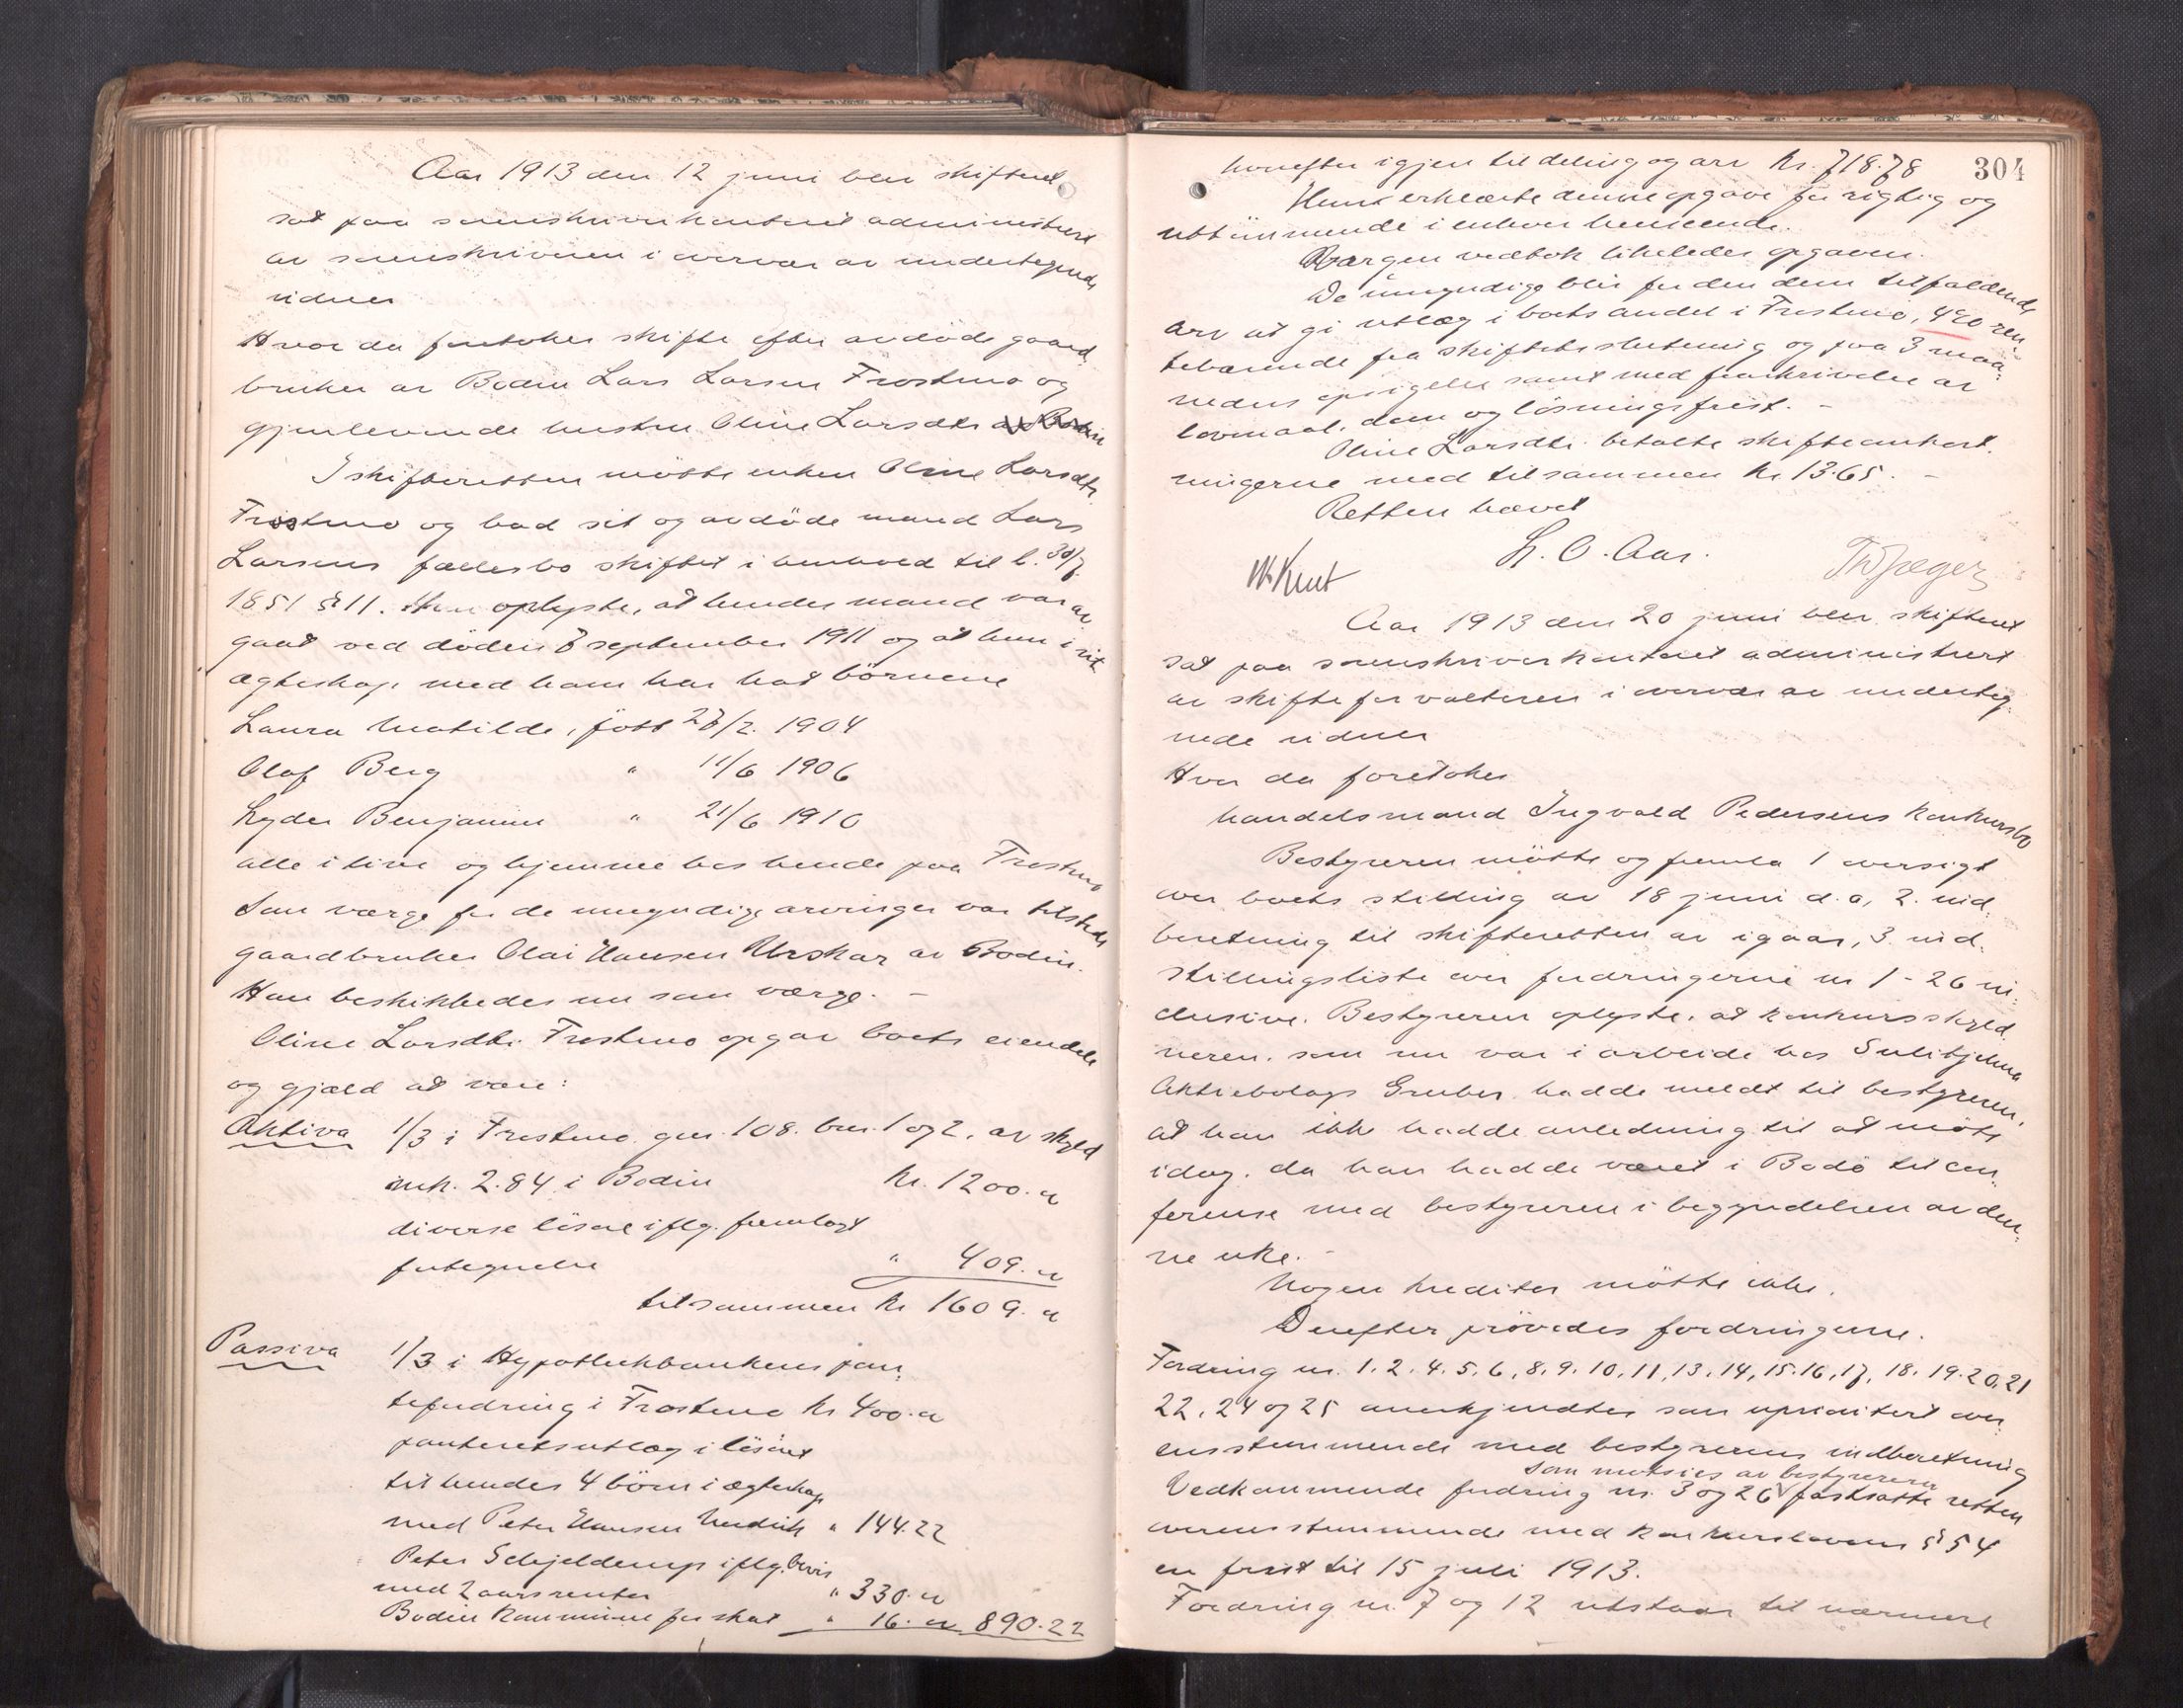 Aar 1913 den 12 juni blev skifteret
sat paa sorenskriverkontoret administrert
av sorenskriveren i overvær av undertegnede
vidner
Hvor da foretokes skifte efter avdøde gaard-
bruker av Bodin Lars Larsen Frostmo og
gjenlevende hustru Oline Larsdtr av Bodin
I skifteretten møtte enken Oline Larsdtr
Frostmo og bad sit og avdøde mand Lars
Larsens fællesbo skiftet i henhold til l. 30/7
1851 § 11. Hun oplyste, at hendes mand var av
gaat ved døden 7 september 1911 og at hun i sit
ægteskap med ham har hat børnene
Laura Matilde, født 27/2. 1904
Olaf Berg " 11/6 1906
Lyder Benjamin " 21/6 1910
alle i live og hjemme hos hende paa Frostmo
Som værge for de umyndige arvinger var tilstede
gaardbruker Olai Hansen Urskar av Bodin.
Han beskikkedes nu som værge. –
Oline Larsdtr. Frostmo opgav boets eiendele
og gjæld at være:
Aktiva 1/3 i Frostmo gnr. 108. brnr. 1 og 2, av skyld
mk. 2.84 i Bodin kr. 1200.„
diverse løsøre iflg. fremlagt
fortegnelse " 409.„
tilsammen kr 1609.„
Passiva 1/3 i Hypothekbankens pan-
tefordring i Frostmo kr 400.„
panteretsutlæg i løsøret
til hendes 4 børn i ægteskap
med Peter Hansen " 144.22
Peter Schjelderup iflg. bevis
med 2 aars renter " 330.„
Bodin kommune for skat " 16.„ 890.22
304
hvorefter igjen til deling og arv kr. 718.78
Hun erklærte denne opgave for rigtig og
uttømmende i enhver henseende.
Værgen vedtok likeledes opgaven.
De umyndige blir for den dem tilfaldende
arv at gi utlæg i boets andel i Frostmo, 4% ren-
tebærende fra skiftets slutning og paa 3 maa-
neders opsigelse samt med fraskrivelse av
lovmaal, dom og løsningsfrist. –
Oline Larsdtr. betalte skifteomkost-
ningerne med tilsammen kr 13.65. –
Retten hævet
L. O. Aas.
W. Knut Th Jæger
Aar 1913 den 20 juni blev skifteret
sat paa sorenskriverkontoret administrert
av skifteforvalteren i overvær av underteg-
nede vidner
Hvor da foretokes
handelsmand Ingvald Pedersens konkursbo
Bestyreren møtte og fremla 1 oversigt
over boets stilling av 18 juni d.a, 2. ind-
beretning til skifteretten av igaar, 3. ind-
stillingsliste over fordringerne nr 1 - 26 in-
clusive. Bestyreren oplyste, at konkursskyld-
neren, som nu var i arbeide hos Sulitjelma
Aktiebolags Gruber, hadde meldt til bestyreren,
at han ikke hadde anledning til at møte
idag, da han hadde været i Bodø til con-
ferense med bestyreren i begyndelsen av den-
ne uke. –
Nogen kreditor møtte ikke.
Derefter prøvedes fordringerne.
Fordring nr. 1. 2. 4. 5. 6, 8. 9. 10, 11, 13, 14, 15. 16, 17, 18. 19. 20. 21
22, 24 og 25 anerkjendtes som uprioritert over-
ensstemmende med bestyrerens indberetning
som motsies av bestyreren
Vedkommende fordring nr. 3 og 26 fastsatte retten
overensstemmende med konkurslovens § 54
en frist til 15 juli 1913.
Fordring nr. 7 og 12 utstaar til nærmere